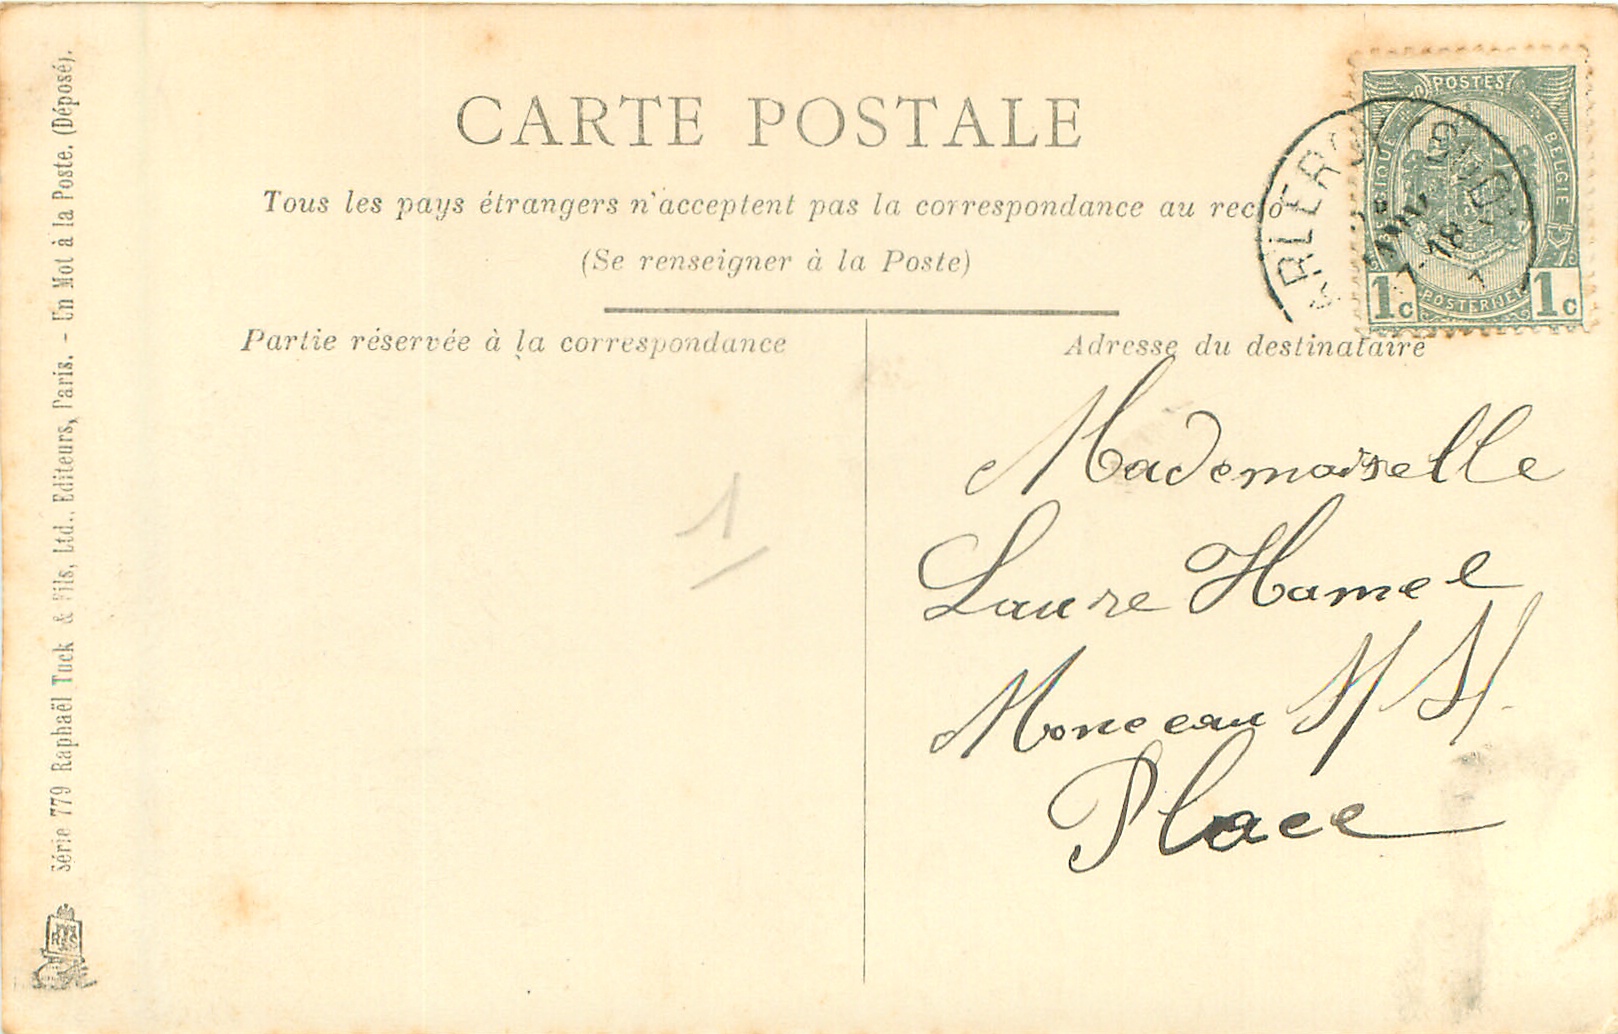 CARTE POSTALE
Tous les pays étrangers n'acceptent pas la correspondance au recto
(Se renseigner à la Poste)
Partie réservée à la correspondance
Adresse du destinataire
POSTES
BELGIQUE BELGIE
POSTERIJEN
1c 1c
17-18
1
Mademoiselle
Laure Hamel
Monceau
Place
Série 779 Raphaël Tuck & Fils, Ltd., Editeurs, Paris. - Un Mot à la Poste. (Déposé).